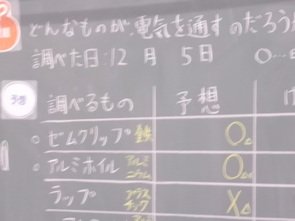 どんなものが、電気を通すのだろうか
調べた日:12 月 5日 ○…
予想 調べるもの 予想
○ゼムクリップ 鉄 ○△
○アルミホイル アルミニウム ○△
ラップ プラスチック ×△